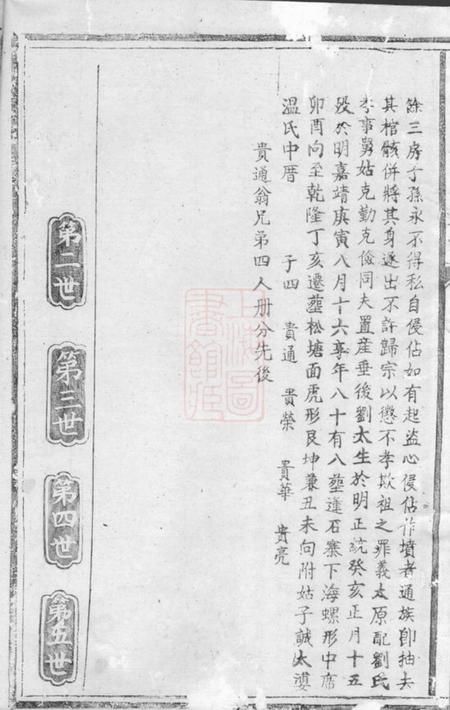 餘三房子孫永不得私自侵佔如有起盜心侵佔詐墳者通族卽抽去
其棺骸併將其身逐出不許歸宗以懲不孝欺祖之罪義太原配劉氏
孝事舅姑克勤克儉同夫置産垂後劉太生於明正統癸亥正月十五
殁於明嘉靖庚寅八月十六享年八十有八塟逢石寨下海螺形中席
卯酉向至乾隆丁亥遷塟松塘面虎形艮坤兼丑未向附姑子誠太婆
温氏中厝 子四 貴通 貴榮 貴華 貴亮
貴通翁兄弟四人册分先後
第二世
第三世
第四世
第五世
上海圖書館藏